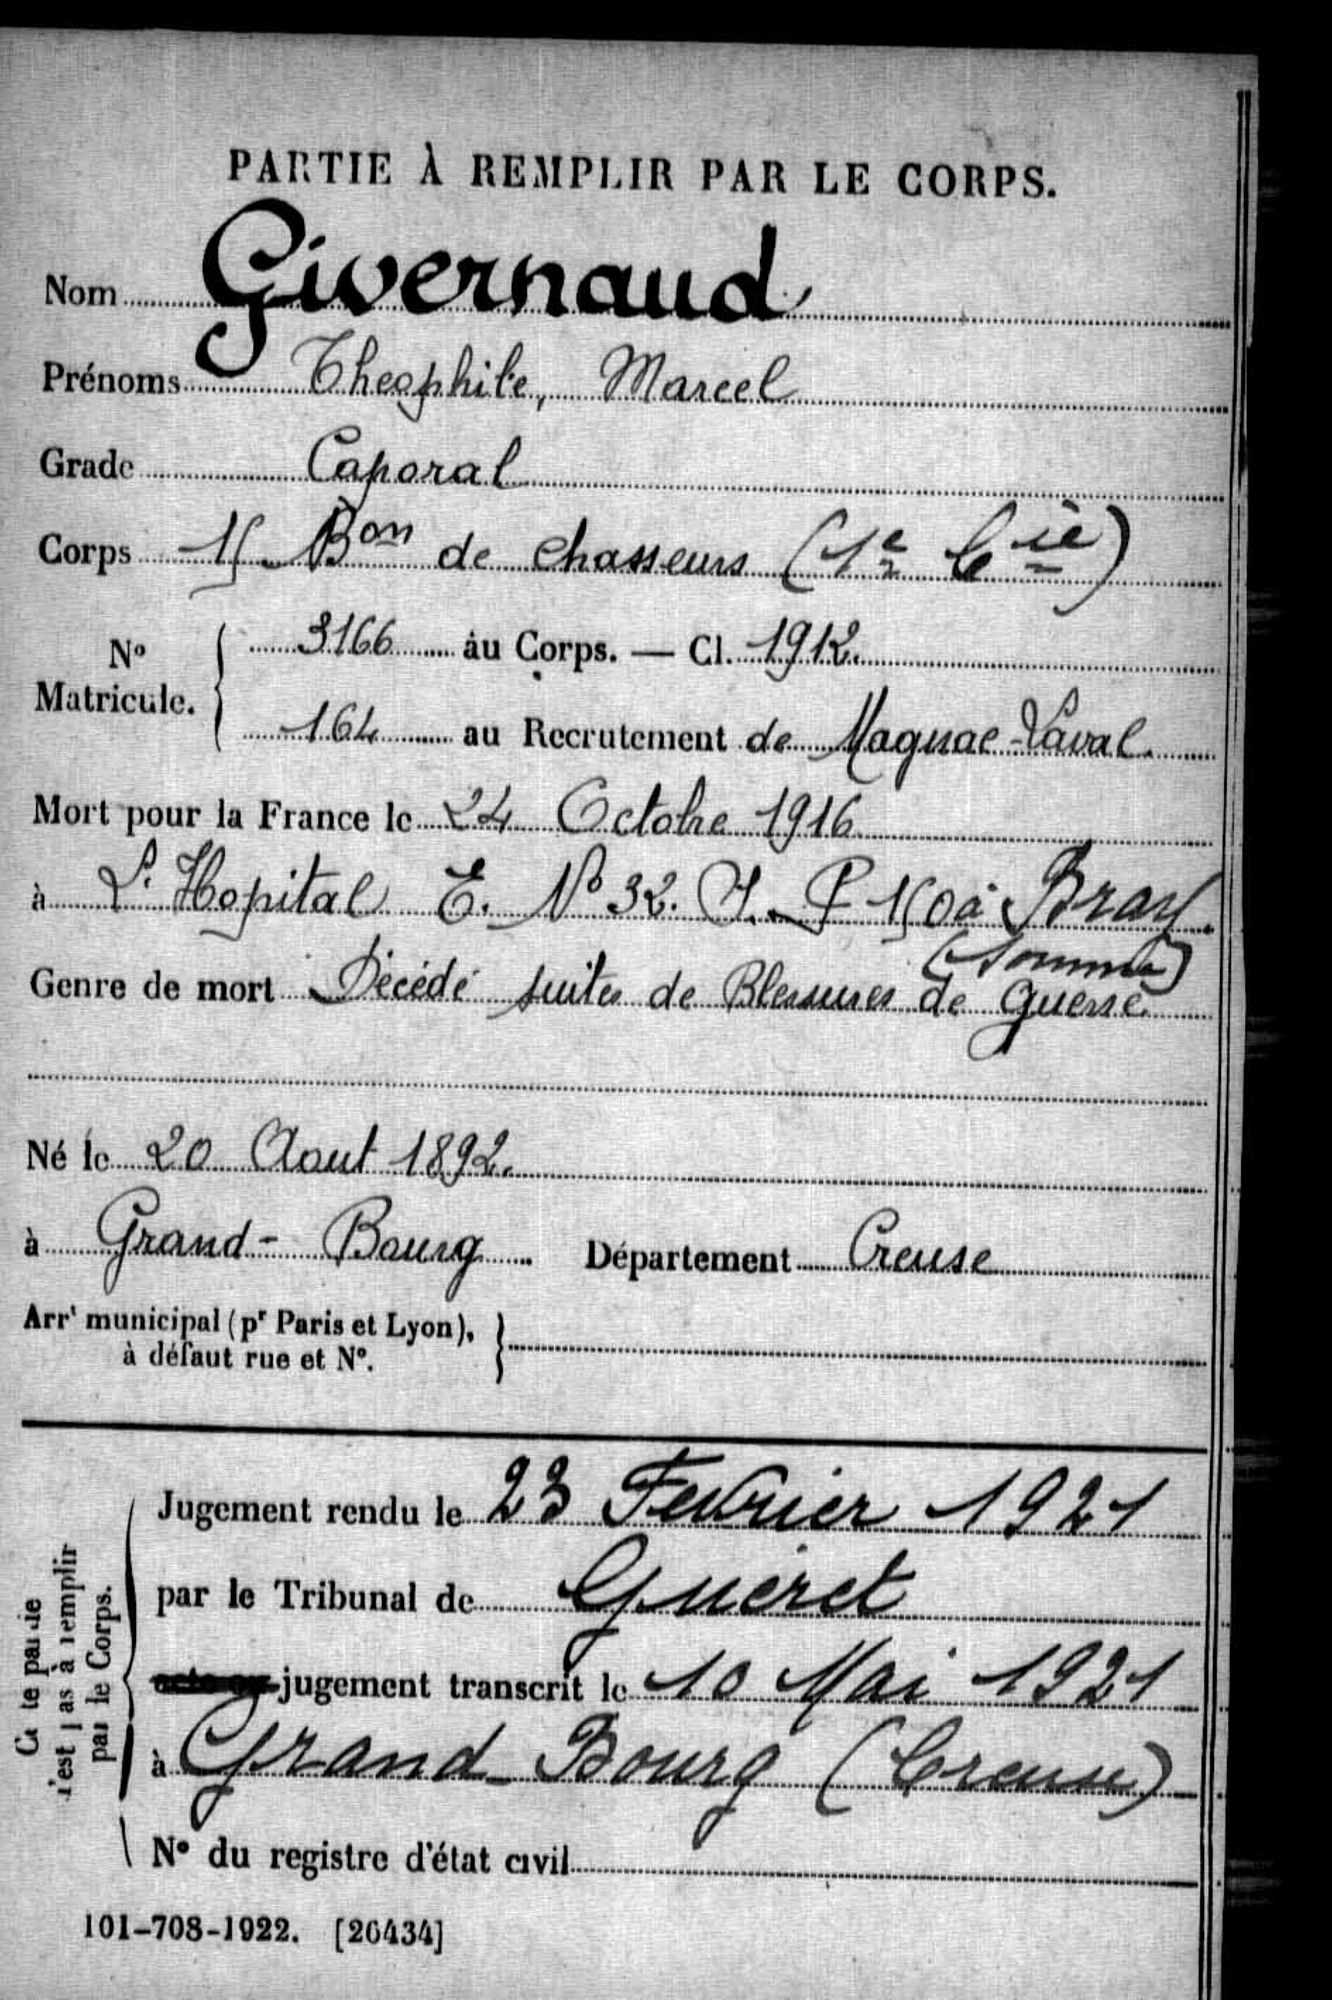 PARTIE À REMPLIR PAR LE CORPS.
Nom Givernaud
Prénoms Theophile, Marcel
Grade Caporal
Corps 15 Bon de chasseurs (1e Cie)
No
Matricule.
3166 au Corps. — Cl. 1912.
164 au Recrutement de Magnac-Laval.
Mort pour la France le 24 Octobre 1916
à L'Hopital E. No 32. S. P 150 à Bray.
(Somme)
Genre de mort Décédé suites de Blessures de guerre
Né le 20 Aout 1892.
à Grand-Bourg Département Creuse
Arrt municipal (pr Paris et Lyon),
à défaut rue et No.
Cette partie
n'est pas à remplir
par le Corps.
Jugement rendu le 23 Fevrier 1921
par le Tribunal de Guéret
jugement transcrit le 10 Mai 1921
à Grand-Bourg (Creuse)
No du registre d'état civil
101-708-1922. [26434]